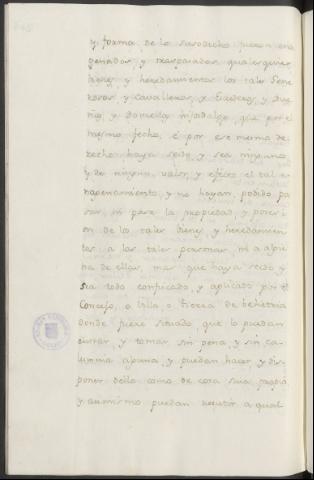 y forma de lo susodicho fueren ena
genados, y traspasados qualesquier
bienes, y heredamientos los tales Seño
res, y Cavalleros, y Escuderos, y Due
ñas, y Doncellas hijosdalgo, que por el
mesmo fecho, é por ese mesmo de
recho haya seido, y sea ninguno,
y de ningun valor, y efecto el tal en
agenamiento, y no hayan podido pa
sar, ni pase la propiedad, y posesi
on de los tales bienes, y heredamien
tos a las tales personas, ni a algu
na de ellas, mas que haya seido y
sea todo confiscado, y aplicado por el
Concejo, a Villa, o tierra de behetria
donde fuere situado, que lo puedan
entrar, y tomar sin pena, y sin ca
lumnia alguna, y puedan hacer, y dis
poner dello como de cosa sua propia
y asimismo puedan resistir a qual